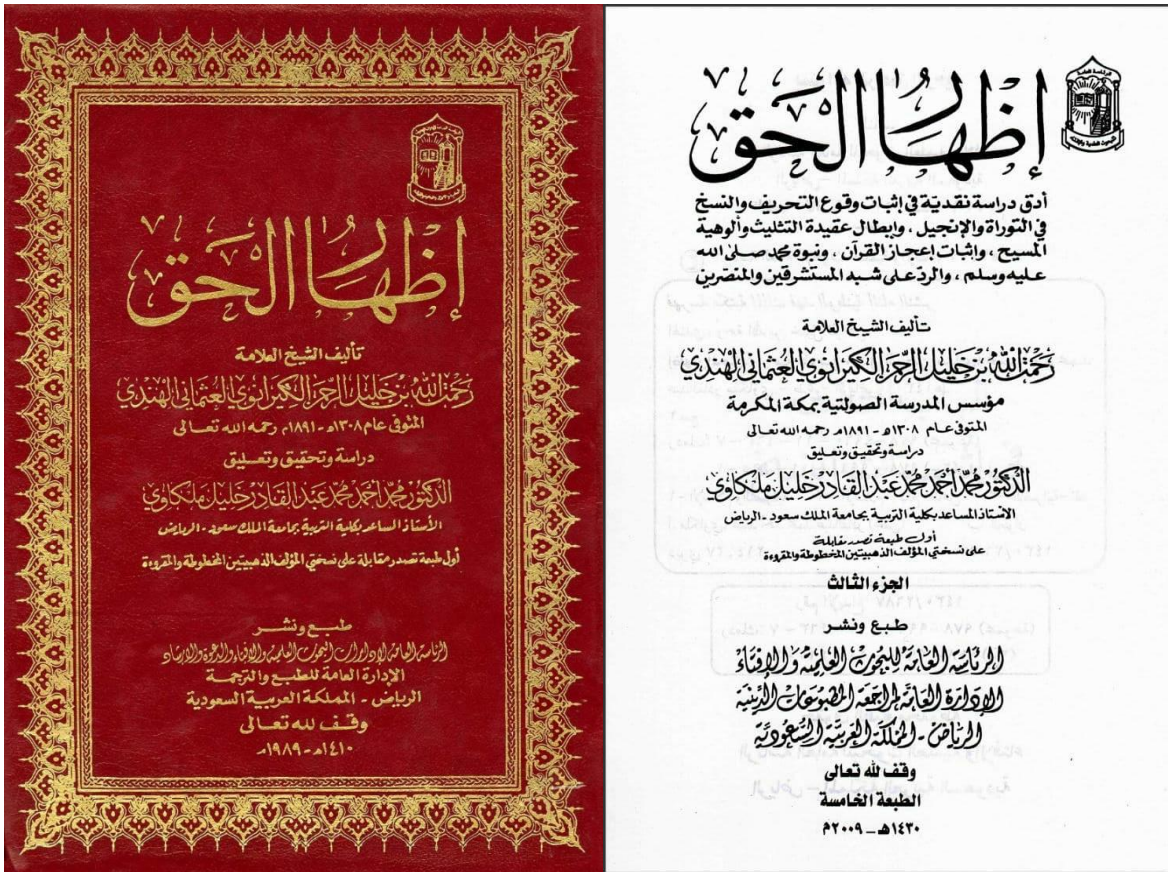 إظهار الحق
تأليف الشيخ العلامة
رحمت الله بن خليل الرحمن الكيرانوي العثماني الهندي
المتوفى عام ١٣٠٨هـ - ١٨٩١م رحمه الله تعالى
دراسة وتحقيق وتعليق
الدكتور محمد أحمد محمد عبد القادر خليل ملكاوي
الأستاذ المساعد بكلية التربية بجامعة الملك سعود - الرياض
أول طبعة تصدر مقابلة على نسختي المؤلف الذهبيتين المخطوطة والمقروءة
طبع ونشر
الرئاسة العامة لإدارات البحوث العلمية والإفتاء والدعوة والإرشاد
الإدارة العامة للطبع والترجمة
الرياض - المملكة العربية السعودية
وقف لله تعالى
١٤١٠هـ - ١٩٨٩م
إظهار الحق
أدق دراسة نقدية في إثبات وقوع التحريف والنسخ
في التوراة والإنجيل ، وإبطال عقيدة التثليث وألوهية
المسيح ، وإثبات إعجاز القرآن ، ونبوة محمد صلى الله
عليه وسلم ، والرد على شبه المستشرقين والمنصرين
تأليف الشيخ العلامة
رحمت الله بن خليل الرحمن الكيرانوي العثماني الهندي
مؤسس المدرسة الصولتية بمكة المكرمة
المتوفى عام ١٣٠٨هـ - ١٨٩١م رحمه الله تعالى
دراسة وتحقيق وتعليق
الدكتور محمد أحمد محمد عبد القادر خليل ملكاوي
الأستاذ المساعد بكلية التربية بجامعة الملك سعود - الرياض
أول طبعة تصدر مقابلة
على نسختي المؤلف الذهبيتين المخطوطة والمقروءة
الجزء الثالث
طبع ونشر
الرئاسة العامة للبحوث العلمية والإفتاء
الإدارة العامة لمراجعة المطبوعات الدينية
الرياض - المملكة العربية السعودية
وقف لله تعالى
الطبعة الخامسة
١٤٣٠هـ - ٢٠٠٩م